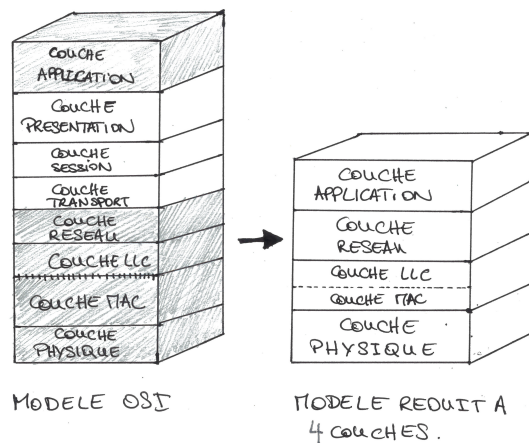 COUCHE
APPLICATION
COUCHE
PRESENTATION
COUCHE
SESSION
COUCHE
TRANSPORT
COUCHE
RESEAU
COUCHE LLC
COUCHE MAC
COUCHE
PHYSIQUE
MODELE OSI
COUCHE
APPLICATION
COUCHE
RESEAU
COUCHE LLC
COUCHE MAC
COUCHE
PHYSIQUE
MODELE REDUIT A
4 COUCHES.